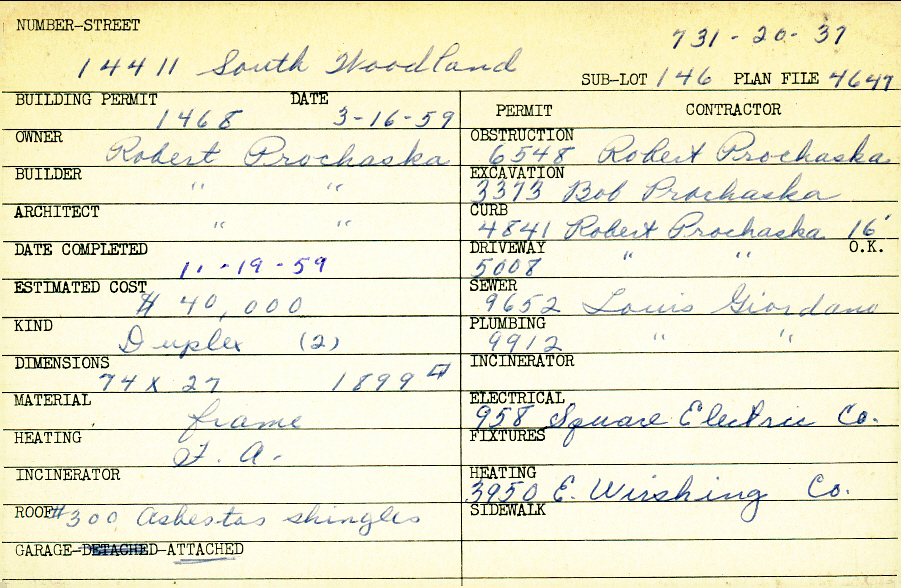 NUMBER-STREET
731-20-37
14411 South Woodland
SUB-LOT 146 PLAN FILE 4647
BUILDING PERMIT DATE
1468 3-16-59
OWNER
Robert Prochaska
BUILDER
" "
ARCHITECT
" "
DATE COMPLETED
11-19-59
ESTIMATED COST
$ 40,000
KIND
Duplex (2)
DIMENSIONS
74 x 27 1899
MATERIAL
frame
HEATING
F. A.
INCINERATOR
ROOF #300 Asbestos shingles
GARAGE-DETACHED-ATTACHED
PERMIT CONTRACTOR
OBSTRUCTION
6548 Robert Prochaska
EXCAVATION
3373 Bob Prochaska
CURB
4841 Robert Prochaska 16'
DRIVEWAY O.K.
5008 " "
SEWER
9652 Louis Giordano
PLUMBING
9912 " "
INCINERATOR
ELECTRICAL
958 Square Electric Co.
FIXTURES
HEATING
3950 E. Wirshing Co.
SIDEWALK